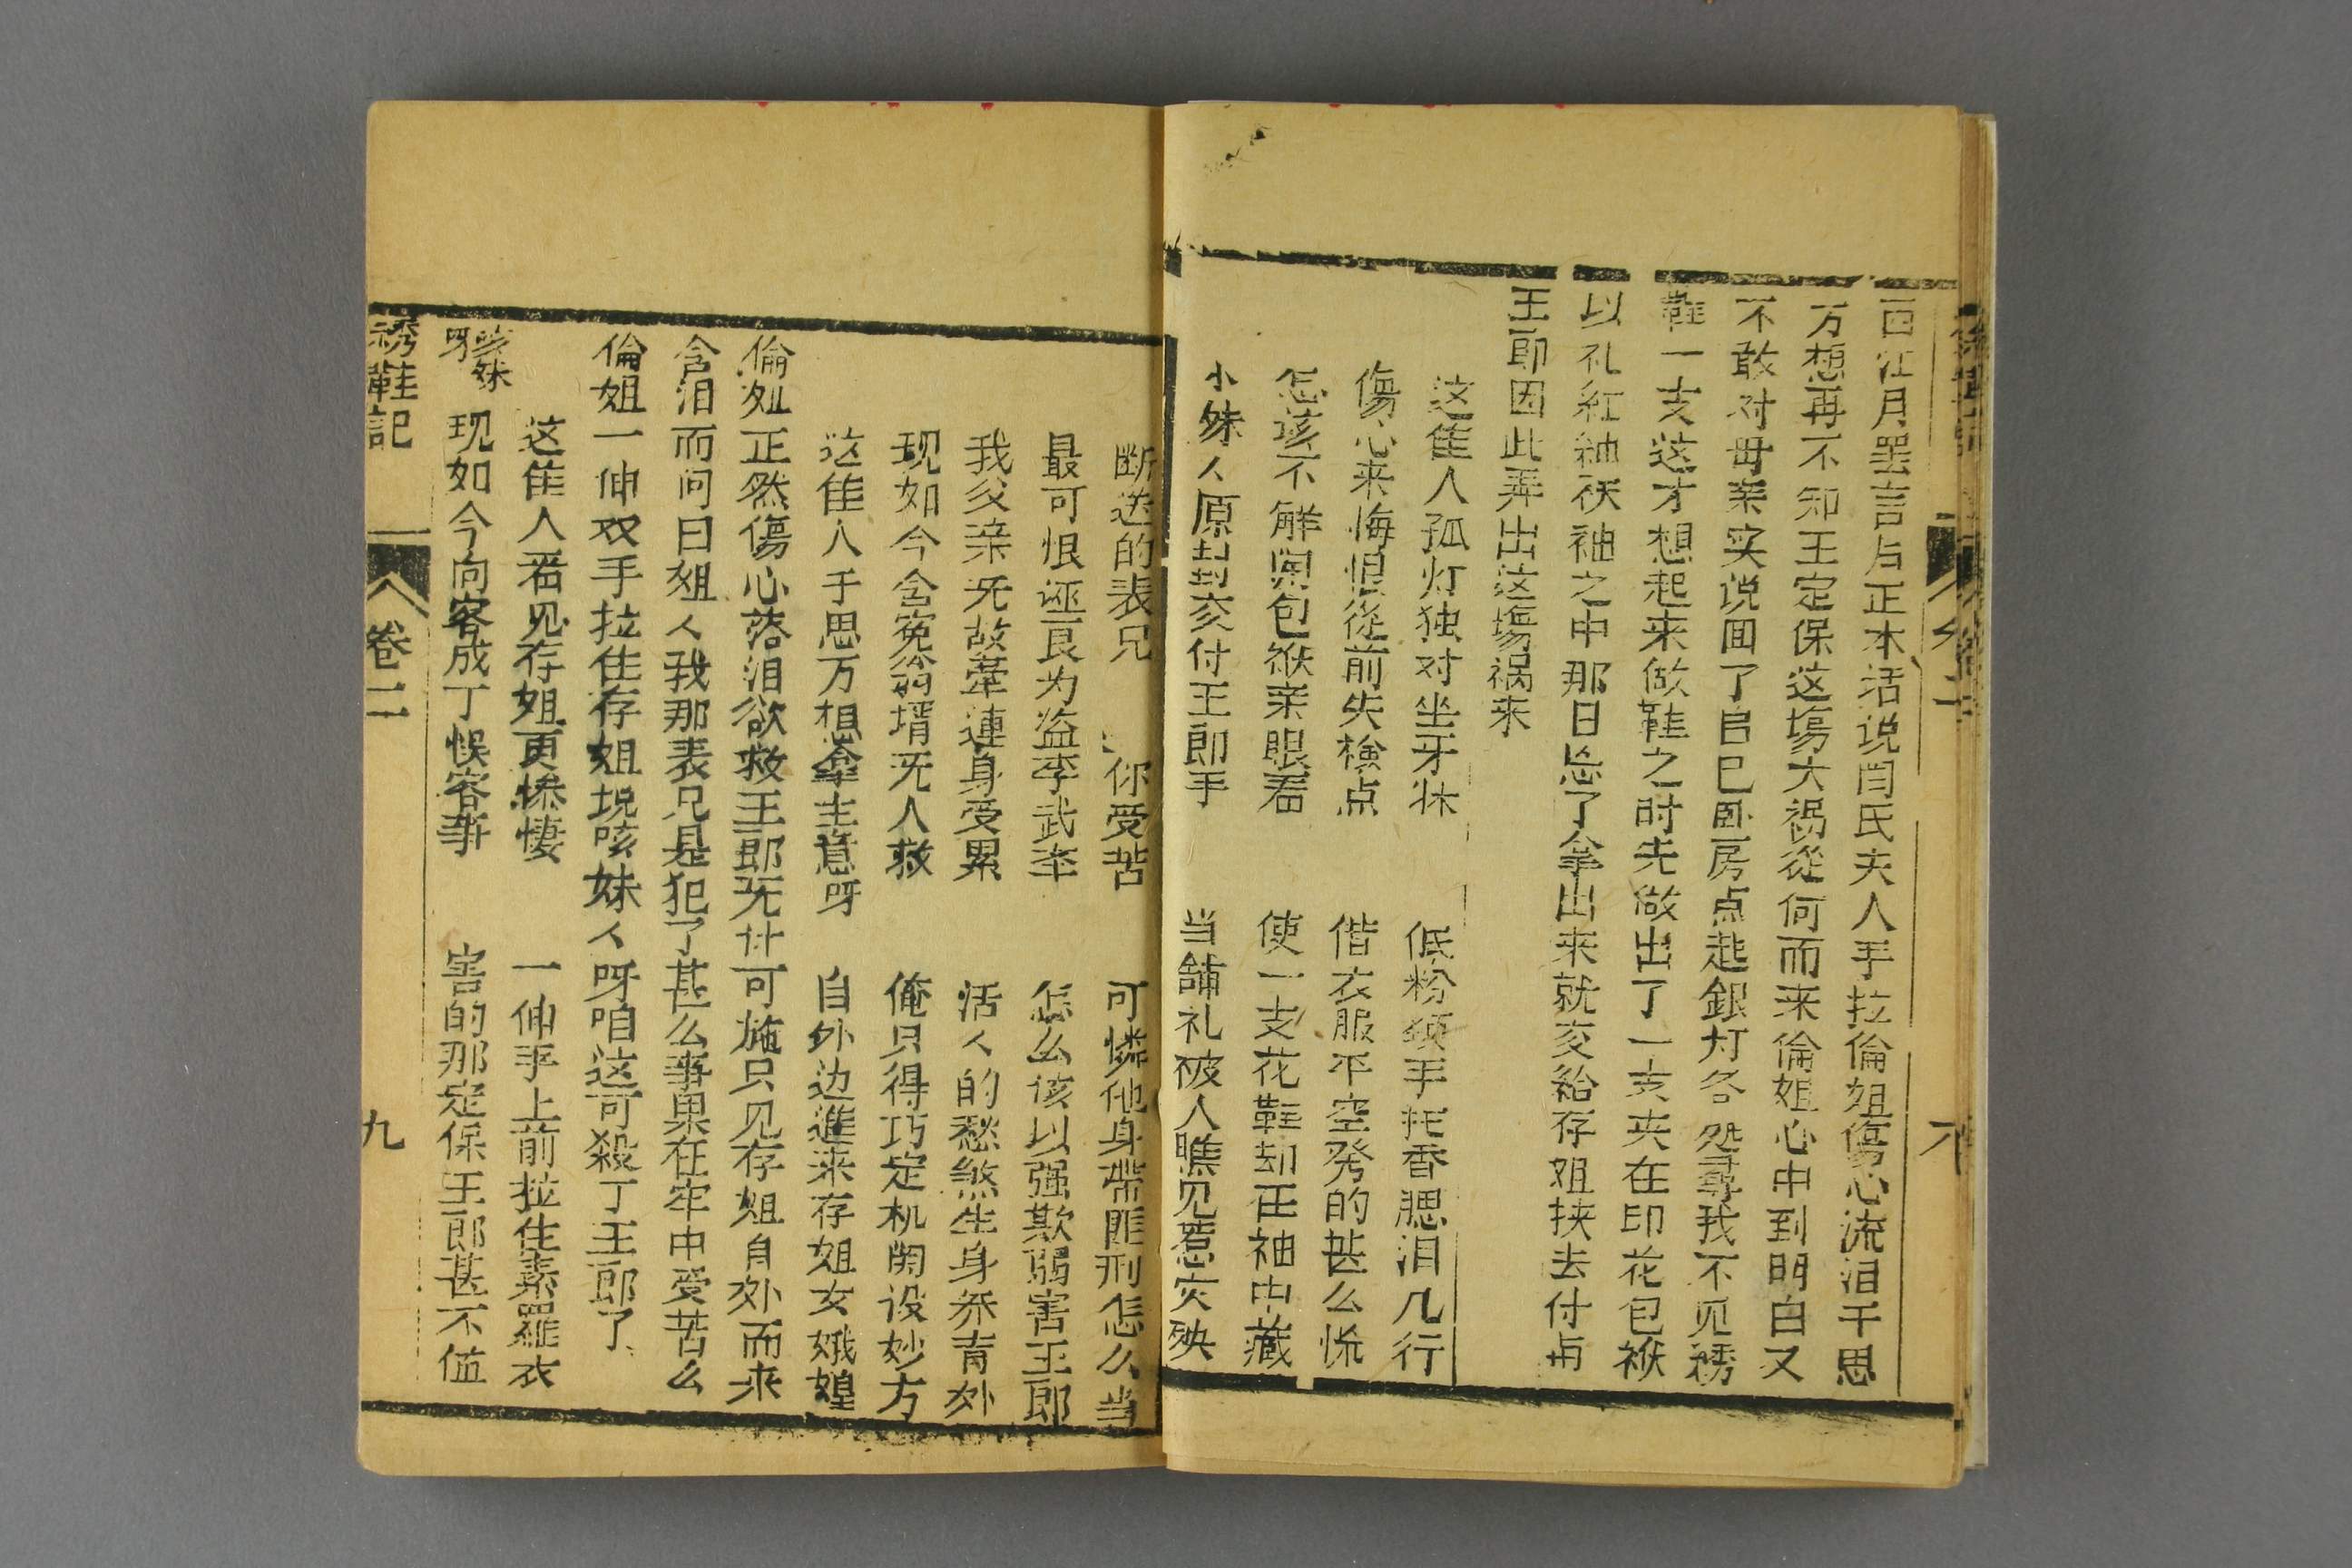 西江月罢言占正本活说闫氏夫人手拉倫姐傷心流泪千思
万想再不知王定保这塲大祸從何而来倫姐心中到明白又
不敢对母亲实说回了自己卧房点起銀灯各処尋我不见綉
鞋一支这才想起来做鞋之时先做出了一支夹在印花包袱
以礼紅紬袄袖之中那日忘了拿出来就交給存姐挟去付与
王郎因此弄出这塲祸来
这隹人孤灯独对坐牙床　低粉颈手托香腮泪几行
傷心来悔恨從前失検点　借衣服平空発的甚么慌
怎该不觧開包袱亲眼看　使一支花鞋却在袖中藏
小妹人原封交付王郎手　当舗礼被人瞧见惹灾殃
断送的表兄　你受苦　可憐他身带匪刑怎么当
最可恨诬良为盗李武举　怎么该以强欺弱害王郎
我父亲无故牽連身受累　活人的愁煞生身养育外
现如今含冤翁壻无人救　俺只得巧定机関设妙方
这隹人千思万想拿主意呀　自外边進来存姐女娥媓
倫姐正然傷心落泪欲救王郎无计可施只见存姐自外而来
含泪而问曰姐人我那表兄是犯了甚么事果在牢中受苦么
倫姐一伸双手拉住存姐説咳妹人呀咱这可殺了王郎了
这隹人看见存姐更惨悽　一伸手上前拉住素羅衣
咳妹呀　现如今向客成了悞客事　害的那定保王郎甚不值
綉鞋記　卷二　九